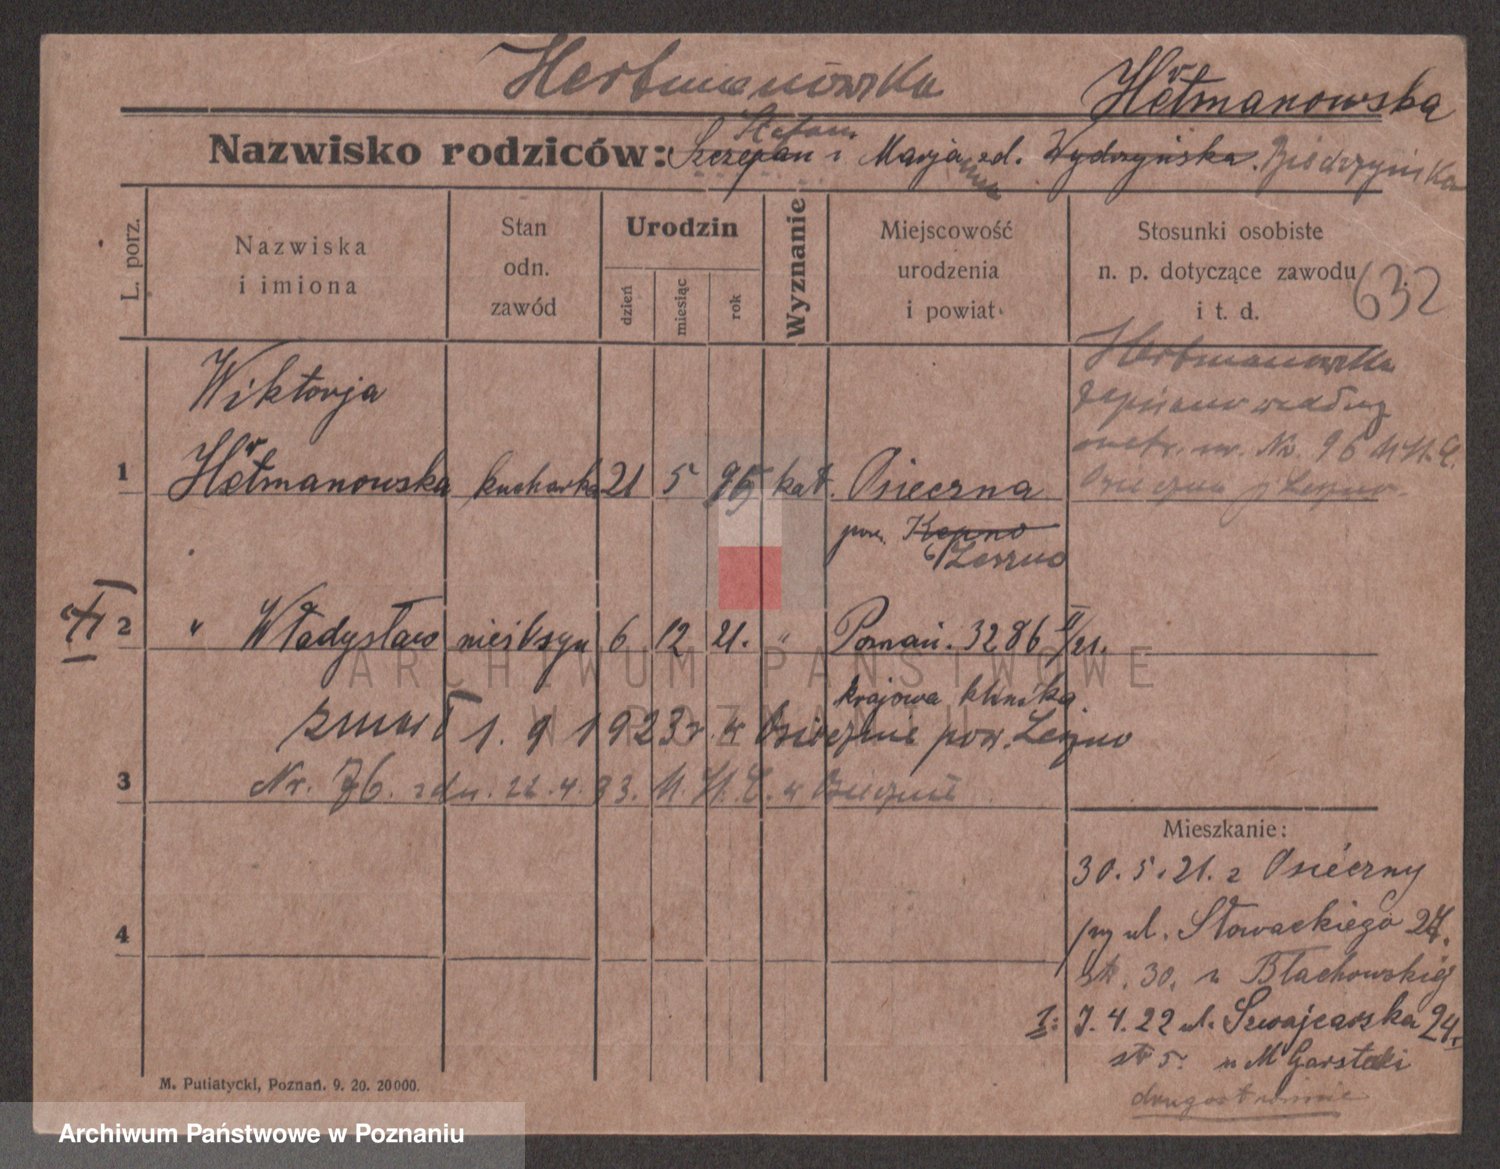 Hertmanowska
Hetmanowska
r
Stefan
Nazwisko rodziców: Szczepan i Marja zd. Wydrzyńska.
L. porz.
Nazwiska i imiona
Stan odn. zawód
Urodzin
dzień miesiąc rok
Wyznanie
Miejscowość urodzenia i powiat
Stosunki osobiste n. p. dotyczące zawodu i t. d.
632
Wiktorja
1 Hetmanowska kucharka 21 5 95 kat. Osieczna
r
pow. Kępno
Leszno
Hertmanowska
zapisano według
metr. ur. Nr. 96 U.S.C.
Osieczna p. Leszno.
2 " Władysław nieśl. syn 6 12 21. " Poznań. 3286 II/21.
krajowa klinika.
zmarł 1. 9 1923 r. w Osiecznie pow. Leszno
3 Nr. 76. z dn. 22.4.33. U.S.C. w Osiecznie
4
Mieszkanie:
30.5.21. z Osieczny
przy ul. Słowackiego 27.
str. 30. u Błachowskiej
1: 7.4.22 ul. Szwajcarska 24.
str 5. u M Garstecki
drugostronnie
M. Putiatycki, Poznań. 9. 20. 20000.
ARCHIWUM PAŃSTWOWE
W POZNANIU
Archiwum Państwowe w Poznaniu